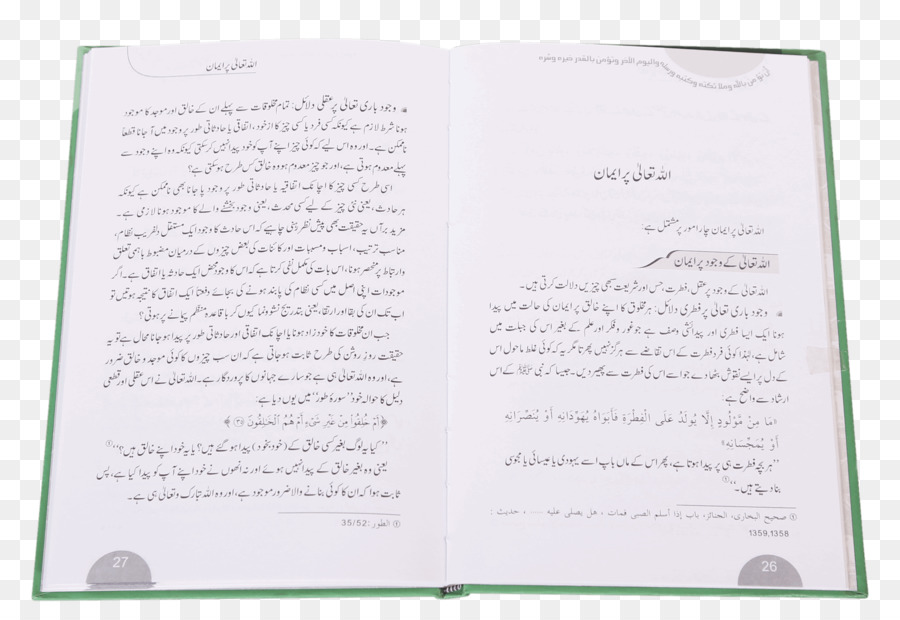 أن تؤمن بالله وملائكته وكتبه ورسله واليوم الآخر وتؤمن بالقدر خيره وشره
اللہ تعالیٰ پر ایمان
اللہ تعالیٰ پر ایمان چار امور پر مشتمل ہے:
اللہ تعالیٰ کے وجود پر ایمان
اللہ تعالیٰ کے وجود پر عقل، فطرت، حس اور شریعت سبھی چیزیں دلالت کرتی ہیں۔
وجود باری تعالیٰ پر فطری دلائل: ہر مخلوق کا اپنے خالق پر ایمان کی حالت میں پیدا
ہونا ایک ایسا فطری اور پیدائشی وصف ہے جو غور و فکر اور علم کے بغیر اس کی جبلت میں
شامل ہے، لہٰذا کوئی فرد فطرت کے اس تقاضے سے ہرگز نہیں پھرتا مگر یہ کہ کوئی غلط ماحول اس
کے دل پر ایسے نقوش بٹھا دے جو اسے اس کی فطرت سے پھیر دیں۔ جیسا کہ نبی ﷺ کے اس
ارشاد سے واضح ہے:
«مَا مِنْ مَوْلُودٍ إِلَّا يُولَدُ عَلَى الْفِطْرَةِ فَأَبَوَاهُ يُهَوِّدَانِهِ أَوْ يُنَصِّرَانِهِ
أَوْ يُمَجِّسَانِهِ»
”ہر بچہ فطرت ہی پر پیدا ہوتا ہے، پھر اس کے ماں باپ اسے یہودی یا عیسائی یا مجوسی
بنا دیتے ہیں۔“①
① صحیح البخاری، الجنائز، باب إذا أسلم الصبي فمات، هل يصلى عليه ......، حدیث:
1359,1358
26
اللہ تعالیٰ پر ایمان
وجود باری تعالیٰ پر عقلی دلائل: تمام مخلوقات سے پہلے ان کے خالق اور موجد کا موجود
ہونا شرط لازم ہے کیونکہ کسی فرد یا کسی چیز کا از خود، اتفاقی یا حادثاتی طور پر وجود میں آ جانا قطعاً
ناممکن ہے۔ اور وہ اس لیے کہ کوئی چیز اپنے آپ کو خود پیدا نہیں کر سکتی کیونکہ وہ اپنے وجود سے
پہلے معدوم ہوتی ہے، اور جو چیز معدوم ہو وہ خالق کس طرح ہو سکتی ہے؟
اسی طرح کسی چیز کا اچانک اتفاقیہ یا حادثاتی طور پر وجود پا جانا بھی ناممکن ہے کیونکہ
ہر حادث، یعنی نئی چیز کے لیے کسی محدث، یعنی وجود بخشنے والے کا موجود ہونا لازمی ہے۔
مزید برآں یہ حقیقت بھی پیش نظر رہنی چاہیے کہ اس حادث کا وجود ایک مستقل دلفریب نظام،
مناسب ترتیب، اسباب و مسببات اور کائنات کی بعض چیزوں کے درمیان مضبوط باہمی تعلق
وارتباط پر منحصر ہونا، اس بات کی مکمل نفی کرتا ہے کہ اس کا وجود محض ایک حادثہ یا اتفاق ہے۔ اگر
موجودات اپنی اصل میں کسی نظام کی پابند ہونے کی بجائے دفعتاً ایک اتفاق کا نتیجہ ہوتیں تو
اب تک ان کی بقا اور ارتقا، یعنی بتدریج نشوونما کیوں کر با قاعدہ منظم پیمانے پر ہوتی؟
جب ان مخلوقات کا خود زاد ہونا یا اچانک اتفاقی اور حادثاتی طور پر پیدا ہو جانا محال ہے تو یہ
حقیقت روز روشن کی طرح ثابت ہو جاتی ہے کہ ان سب چیزوں کا کوئی موجد و خالق ضرور
ہے، اور وہ اللہ تعالیٰ ہی ہے جو سارے جہانوں کا پروردگار ہے۔ اللہ تعالیٰ نے اس عقلی اور قطعی
دلیل کا حوالہ خود ”سورۂ طور“ میں یوں دیا ہے:
﴿أَمْ خُلِقُوا مِنْ غَيْرِ شَيْءٍ أَمْ هُمُ الْخَالِقُونَ﴾
”کیا یہ لوگ بغیر کسی خالق کے (خود بخود) پیدا ہو گئے ہیں؟ یا یہ خود اپنے خالق ہیں؟“①
یعنی وہ بغیر خالق کے پیدا نہیں ہوئے اور نہ انھوں نے خود اپنے آپ کو پیدا کیا ہے، پس
ثابت ہوا کہ ان کا کوئی بنانے والا ضرور موجود ہے، اور وہ اللہ تبارک و تعالیٰ ہی ہے۔
① الطور: 35/52
27